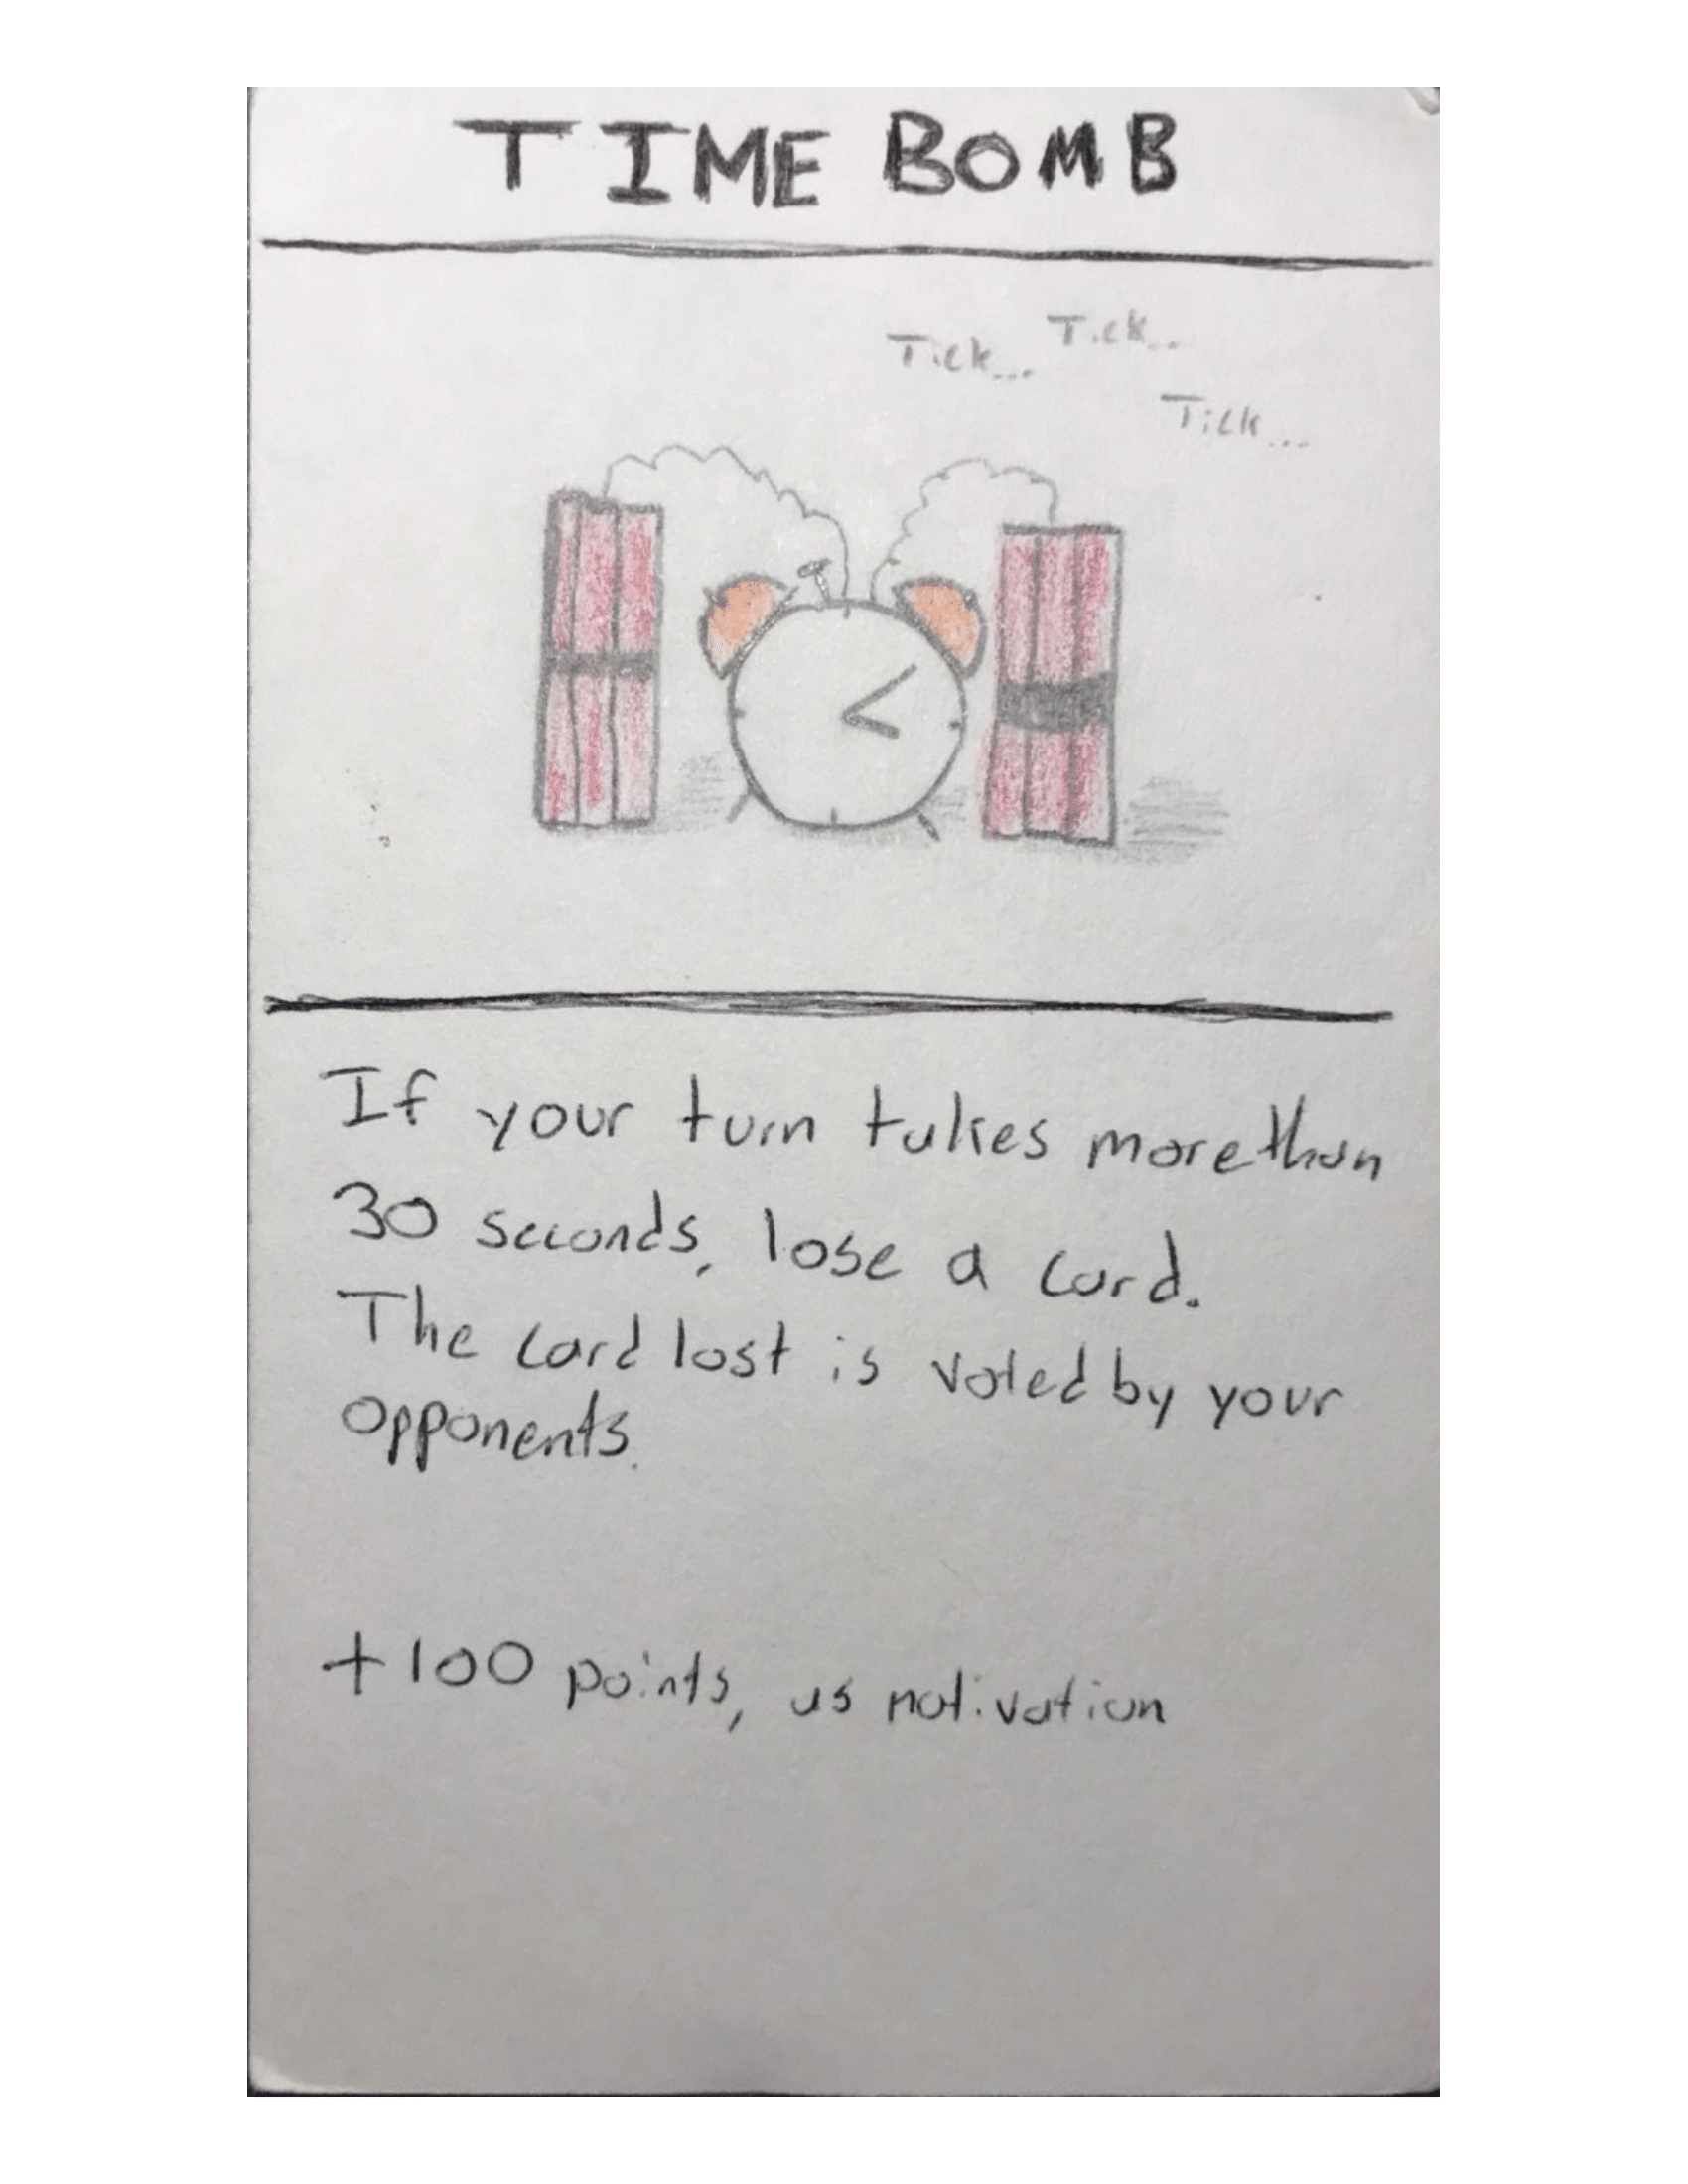 TIME BOMB
Tick... Tick...
Tick...
If your turn takes more than
30 seconds, lose a card.
The card lost is voted by your
opponents.
+100 points, as motivation